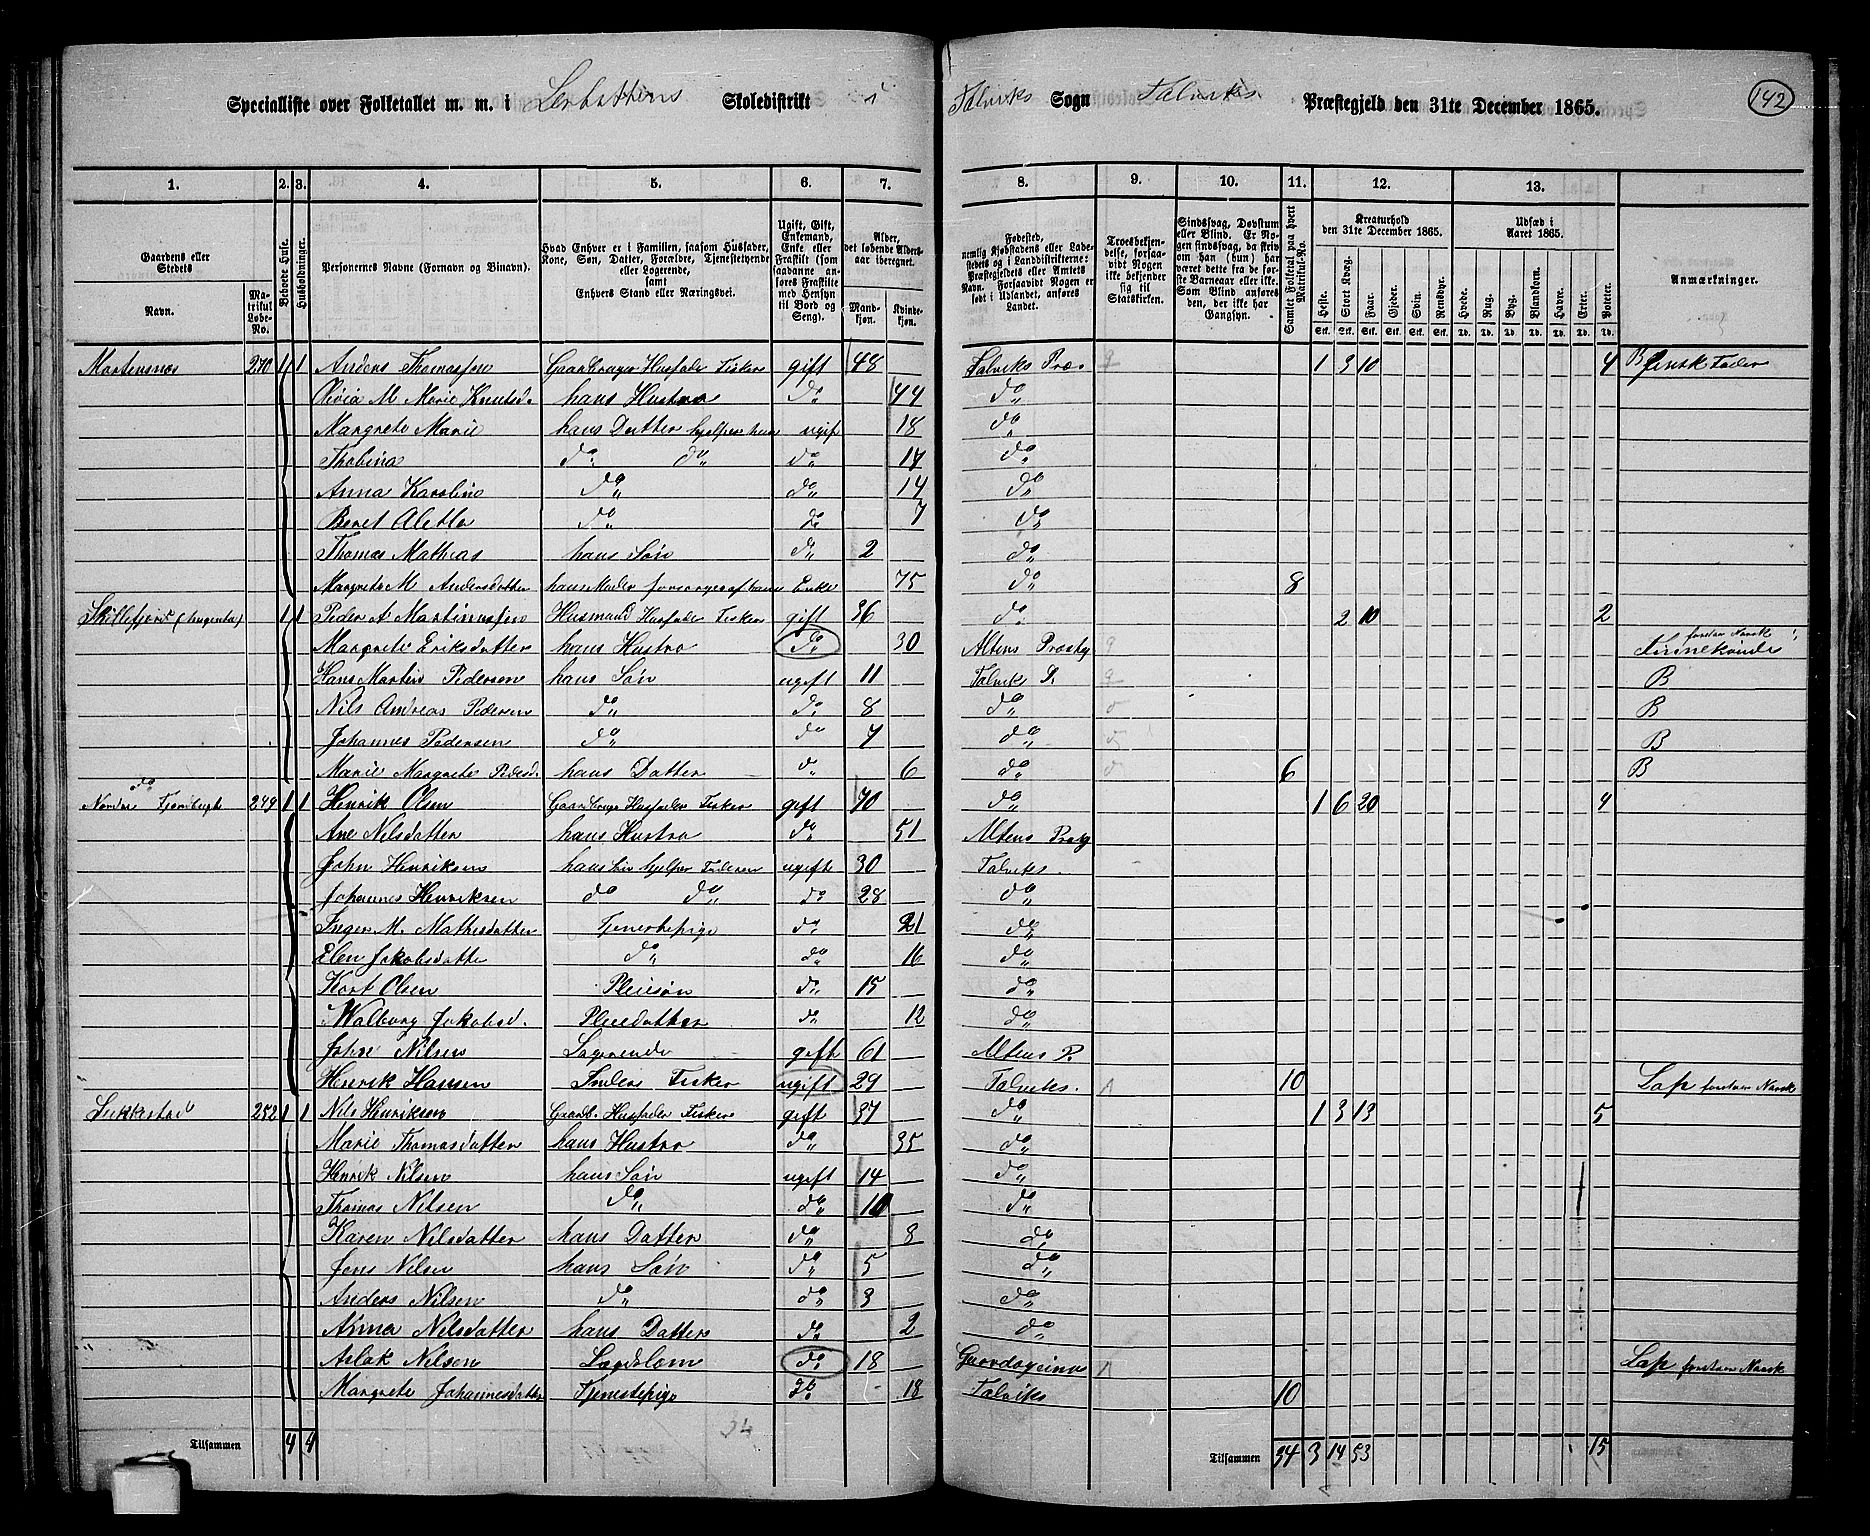 Specialliste over Folketallet m. m. i Lerbottens Skoledistrikt i Talviks Sogn Talviks Præstegjeld den 31te December 1865. 142
1. 2. 3. 4. 5. 6. 7. 8. 9. 10. 11. 12. 13.
Gaardens eller Stedets
Navn. Matrikul Løbe-No.
Beboede Huse.
Husholdninger.
Personernes Navne (Fornavn og Binavn).
Hvad Enhver er i Familien, saasom Husfader, Kone, Søn, Datter, Forældre, Tjenestetyende eller Logerende, samt Enhvers Stand eller Næringsvei.
Ugift, Gift, Enkemand, Enke eller Fraskilt (som saadanne anføres Fraskilte med Hensyn til Bord og Seng).
Alder, det løbende Alders-aar iberegnet.
Mandkjøn. Kvindekjøn.
Troesbekjendelse, forsaavidt Nogen ikke bekjender sig til Statskirken.
Sindssvag, Døvstum eller Blind.
Samlet Folketal paa hvert Matrikul-No.
Kreaturhold den 31te December 1865.
Heste. Stort Kvæg. Faar. Gjeder. Svin. Rensdyr.
Udsæd i Aaret 1865.
Hvede. Rug. Byg. Blandkorn. Havre. Erter. Poteter.
Anmærkninger.
Martensnæs 270 1 1 Anders Thomassen Gaardbruger Husfader Fisker gift 48 Talviks Præ. 1 3 10 4 B finsk Fader
Olivia M Marie Knutsd. hans Hustro do 44 do
Margrete Marie hans Datter hjelper ham ugif 18 do
Thobina do do do 17 do
Anna Karoline do do 14 do
Beret Aletta do do 7 do
Thomas Mathias hans Søn do 2 do
Margrete M Andersdatter hans Moder forsørges af ham Enke 75 do 8
Skillefjord 1 1 Peder A Martinussen Husmand Husfader Fisker gift 36 do 2 10 2
Margrete Eriksdatter hans Hustro do 30 Altens Præstg forstaar Norsk
Hans Martin Pedersen hans Søn ugift 11 Talvik P. B
Nils Andreas Pedersen do do 8 do B
Johannes Pedersen do do 7 do B
Marie Margrete Pedersd. hans Datter do 6 do 6 B
do
Nordre 249 1 1 Henrik Olsen Gaardbruger Husfader Fisker gift 70 do 1 6 20 4
Ane Nilsdatter hans Hustro do 51 Altens Præstg
John Henriksen hans Søn hjelper Faderen ugift 30 Talviks
Johannes Henriksen do do do 28 do
Inger M. Mathisdatter Tjenestepige do 21 do
Elen Jakobsdatte do do 16 do
Kort Olsen Pleiesøn do 15 do
Walborg Jakobsd. Pleiedatter do 12 do
John Nilsen Logerende gift 61 Altens P.
Henrik Hansen Inderst Fisker ugift 29 Talviks. 10 Lap forstaar Norsk
Lukkestad 252 1 1 Nils Henriksen Gaardb. Husfader Fisker gift 37 do 1 3 13 5
Marie Thomasdatter hans Hustro do 35 do
Henrik Nilsen hans Søn ugift 14 do
Thomas Nilsen do do 10 do
Karen Nilsdatter hans Datter do 8 do
Jens Nilsen hans Søn do 5 do
Anders Nilsen do do 3 do
Anna Nilsdatter hans Datter do 2 do
Aslak Nilsen do 18 Lap forstaar Norsk
Margrete Johannesdatter Tjenestepige do 18 Talviks 10
34
Tilsammen 4 4 Tilsammen 34 3 14 53 15